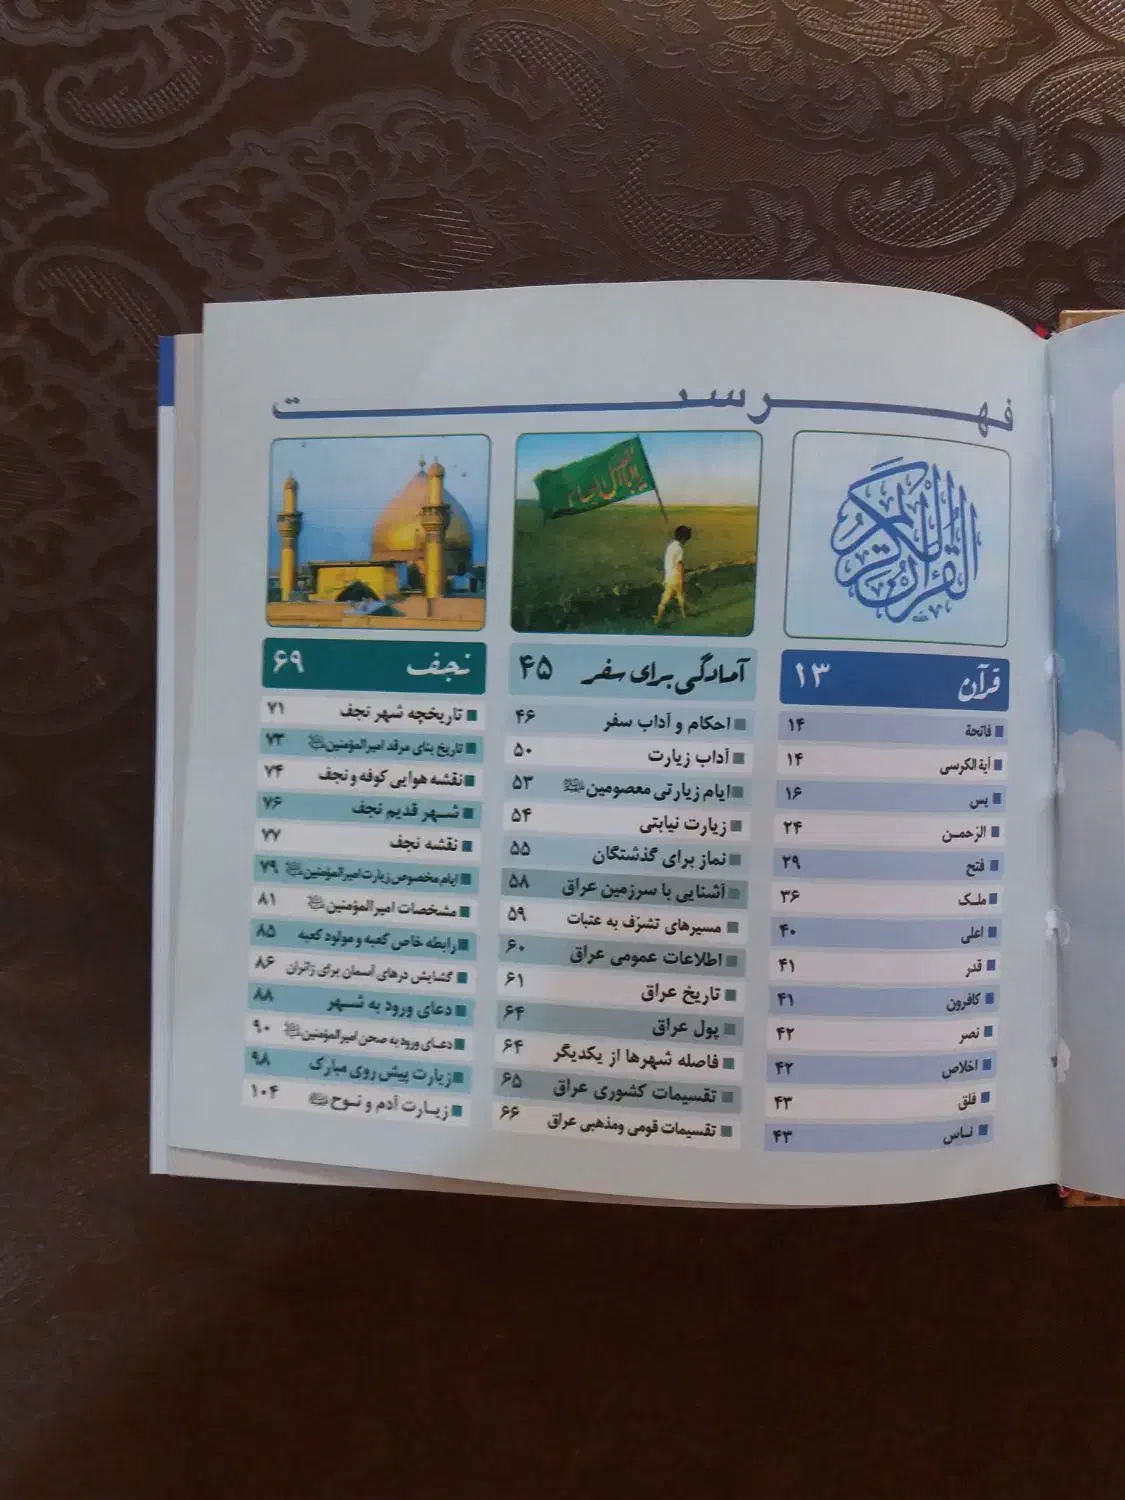 فهرست
القرآن الکریم
قرآن ۱۳
فاتحة ۱۴
آیة الکرسی ۱۴
یس ۱۶
الرّحمـن ۲۴
فتح ۲۹
ملـک ۳۶
اعلی ۴۰
قدر ۴۱
کافرون ۴۱
نصر ۴۲
اخلاص ۴۲
فلق ۴۳
نـاس ۴۳
آمادگی برای سفر ۴۵
احکام و آداب سفر ۴۶
آداب زیارت ۵۰
ایام زیارتی معصومین ۵۳
زیارت نیابتی ۵۴
نماز برای گذشتگان ۵۵
آشنایی با سرزمین عراق ۵۸
مسیرهای تشرّف به عتبات ۵۹
اطلاعات عمومی عراق ۶۰
تاریخ عراق ۶۱
پول عراق ۶۴
فاصله شهرها از یکدیگر ۶۴
تقسیمات کشوری عراق ۶۵
تقسیمات قومی ومذهبی عراق ۶۶
نجف ۶۹
تاریخچه شهر نجف ۷۱
تاریخ بنای مرقد امیرالمؤمنین ۷۳
نقشه هوایی کوفه و نجف ۷۴
شـهر قدیم نجف ۷۶
نقشه نجف ۷۷
ایام مخصوص زیارت امیرالمؤمنین ۷۹
مشخصات امیرالمؤمنین ۸۱
رابطه خاص کعبه و مولود کعبه ۸۵
گشایش درهای آسمان برای زائران ۸۶
دعای ورود به شـهر ۸۸
دعـای ورود به صحن امیرالمؤمنین ۹۰
زیارت پیش روی مبارک ۹۸
زیـارت آدم و نـوح ۱۰۴